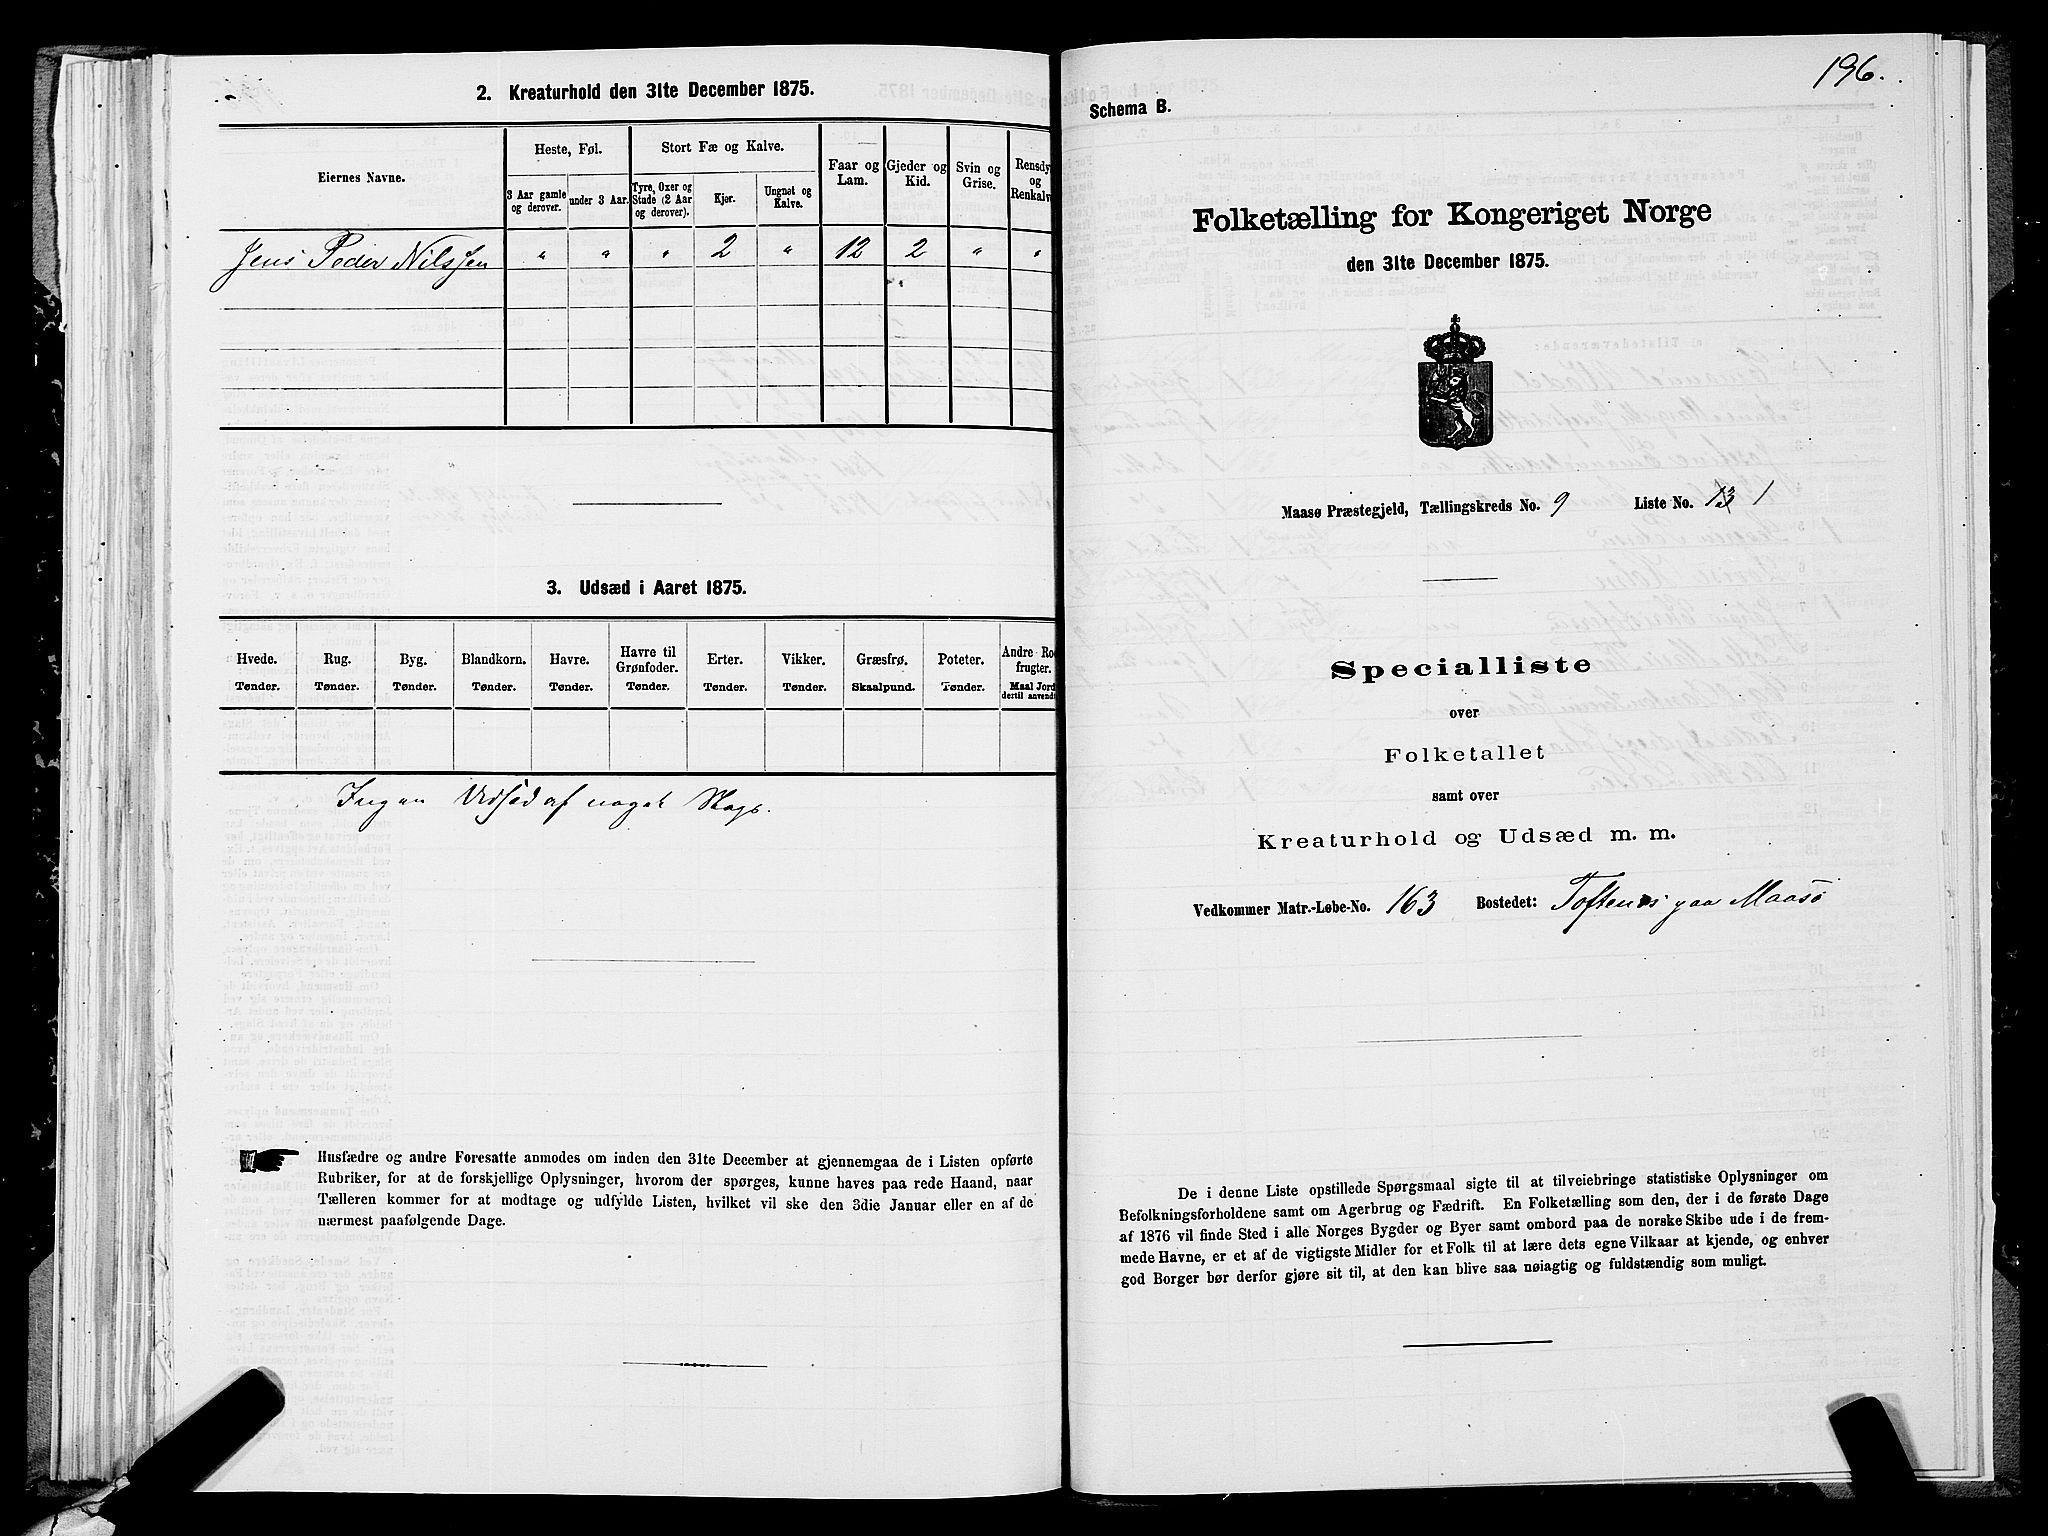 2. Kreaturhold den 31te December 1875.
Eiernes Navne.
Heste, Føl.
Stort Fæ og Kalve.
Faar og Lam.
Gjeder og Kid.
Svin og Grise.
Rensdy
og
Renkalv
3 Aar gamle og derover.
under 3 Aar.
Tyre, Oxer og Stude (2 Aar og derover).
Kjør.
Ungnøt og Kalve.
Jens Peder Nilssen " " " 2 " 12 2 " "
3. Udsæd i Aaret 1875.
Hvede. Rug. Byg. Blandkorn. Havre. Havre til Grønfoder. Erter. Vikker. Græsfrø. Poteter. Andre Ro frugter.
Tønder. Tønder. Tønder. Tønder. Tønder. Tønder. Tønder. Tønder. Skaalpund. Tønder. Maal Jord dertil anvend
Ingen Udsæd af noget Slags.
Husfædre og andre Foresatte anmodes om inden den 31te December at gjennemgaa de i Listen opførte
Rubriker, for at de forskjellige Oplysninger, hvorom der spørges, kunne haves paa rede Haand, naar
Tælleren kommer for at modtage og udfylde Listen, hvilket vil ske den 3die Januar eller en af de
nærmest paafølgende Dage.
196.
Schema B.
Folketælling for Kongeriget Norge
den 31te December 1875.
Maasø Præstegjeld, Tællingskreds No. 9 Liste No. 13 1
Specialliste
over
Folketallet
samt over
Kreaturhold og Udsæd m. m.
Vedkommer Matr.-Løbe-No. 163 Bostedet: Toftenes paa Maasø
De i denne Liste opstillede Spørgsmaal sigte til at tilveiebringe statistiske Oplysninger om
Befolkningsforholdene samt om Agerbrug og Fædrift. En Folketælling som den, der i de første Dage
af 1876 vil finde Sted i alle Norges Bygder og Byer samt ombord paa de norske Skibe ude i de frem-
mede Havne, er et af de vigtigste Midler for et Folk til at lære dets egne Vilkaar at kjende, og enhver
god Borger bør derfor gjøre sit til, at den kan blive saa nøiagtig og fuldstændig som muligt.